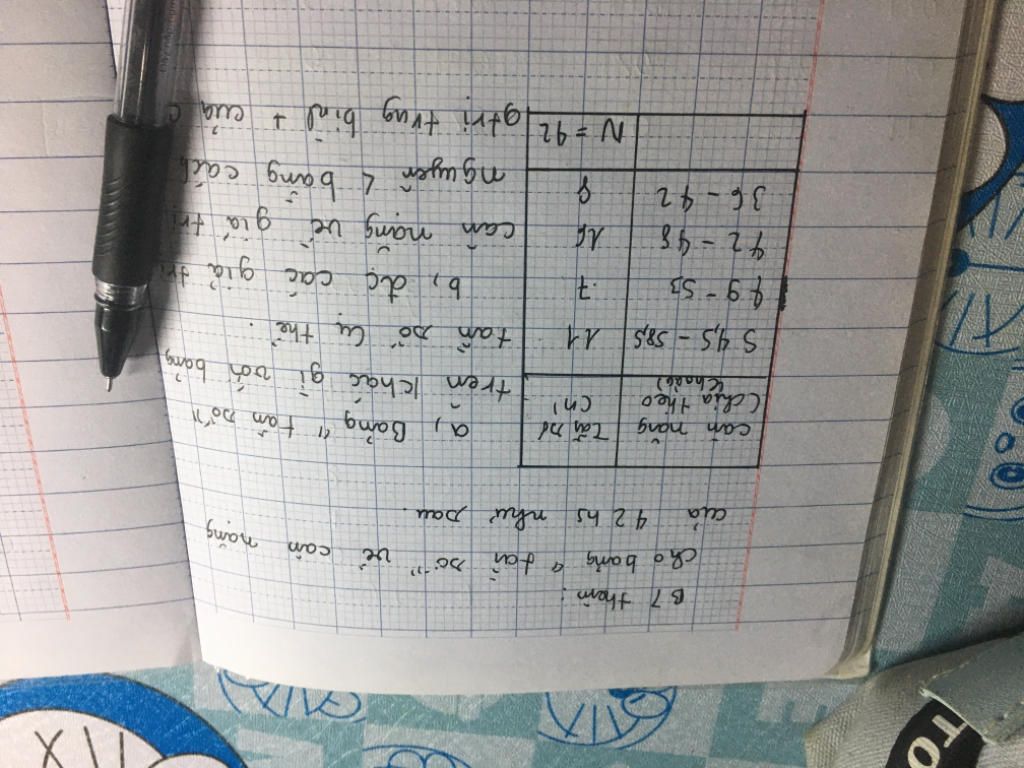 BT thêm:
Cho bảng "tần số" về cân nặng
của 42 hs như sau.
cân nặng Tần số
(chia theo (n)
khoảng)
54,5 - 58,5 11
49 - 53 7
42 - 48 16
36 - 42 8
N = 42
a, Bảng "tần số"
trên khác gì với bảng
tần số cụ thể.
b, đc các giá trị
cân nặng về giá trị
nguyên < bằng cách
gtrị trug bình + của
TO